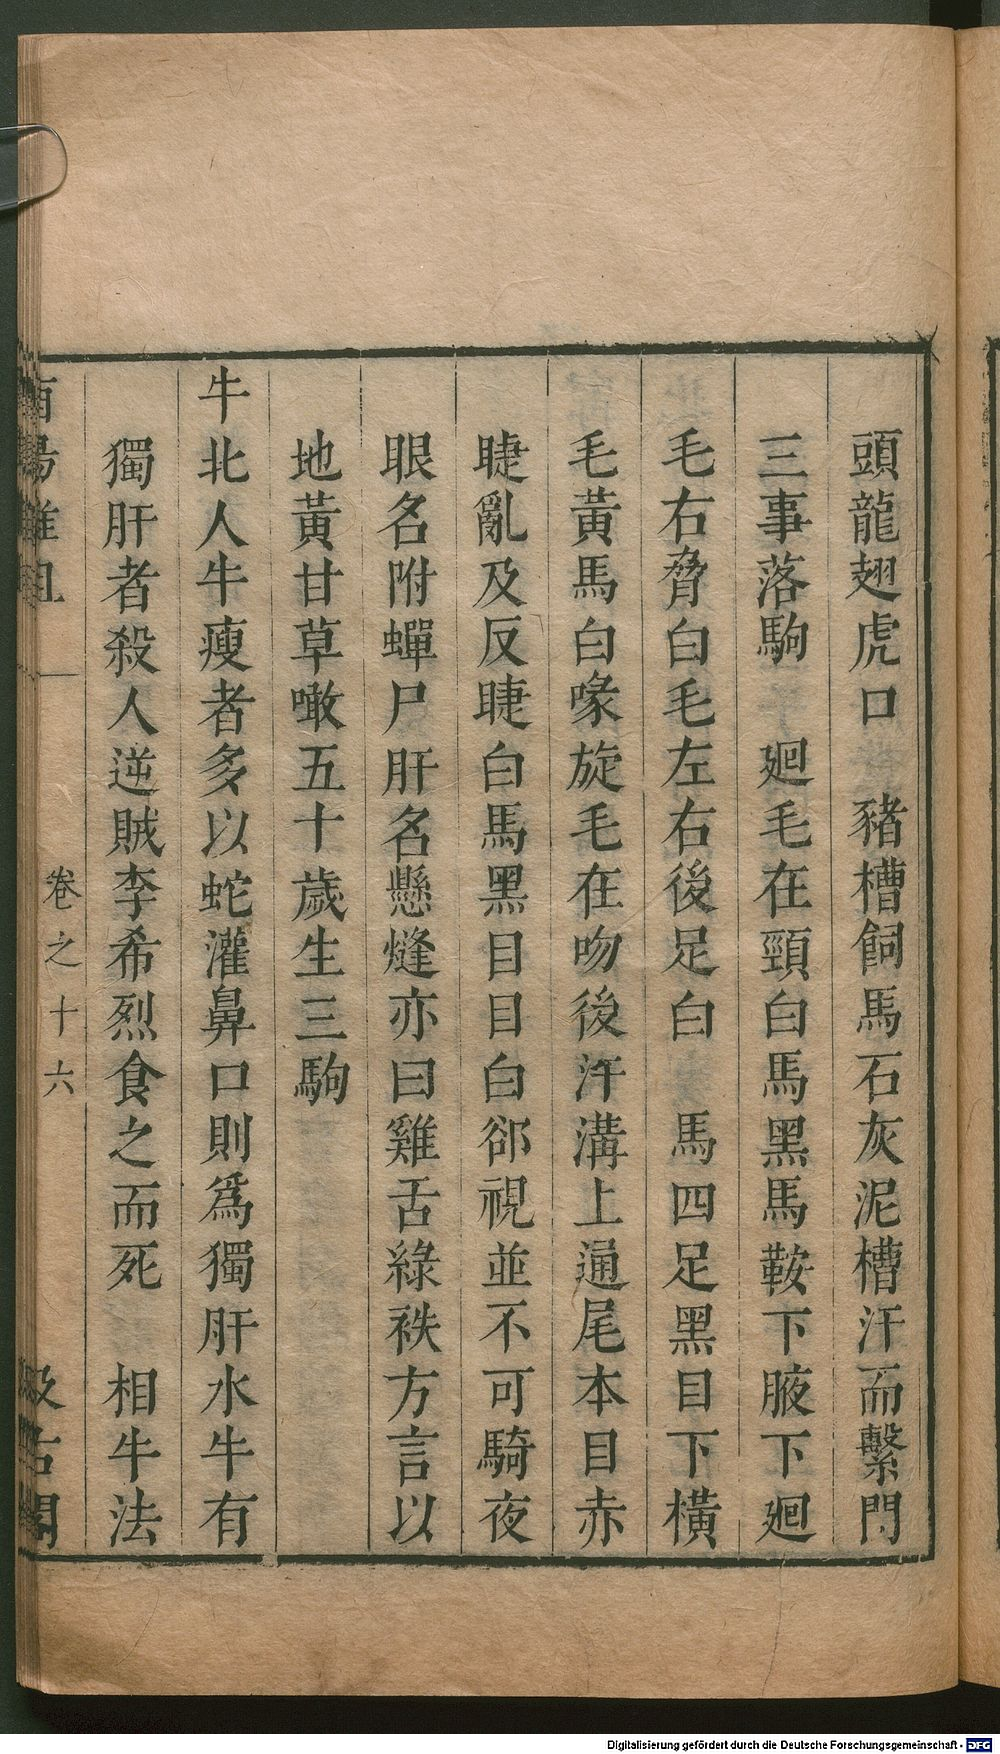 頭龍翅虎口　豬槽飼馬石灰泥槽汗而繫門
三事落駒　廻毛在頸白馬黑馬鞍下腋下廻
毛右脅白毛左右後足白　馬四足黑目下橫
毛黃馬白喙旋毛在吻後汗溝上通尾本目赤
睫亂及反睫白馬黑目目白郤視並不可騎夜
眼名附蟬尸肝名懸熢亦曰雞舌綠袟方言以
地黃甘草噉五十歲生三駒
牛北人牛瘦者多以蛇灌鼻口則爲獨肝水牛有
獨肝者殺人逆賊李希烈食之而死　相牛法
卷之十六
Digitalisierung gefördert durch die Deutsche Forschungsgemeinschaft - DFG